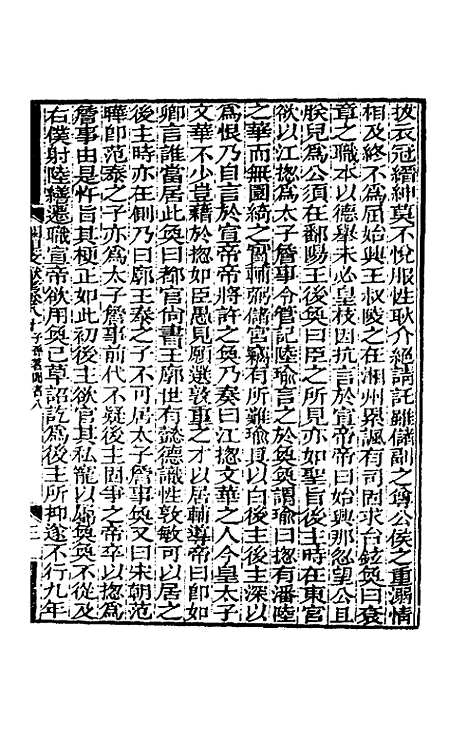 拔衣冠縉紳莫不悅服性耿介絕請託雖儲副之尊公侯之重溺情
相及終不為屈始興王叔陵之在湘州累諷有司固求台鉉奐曰袞
章之職本以德舉未必皇枝因抗言於宣帝帝曰始興那忽望公且
朕兒為公須在鄱陽王後奐曰臣之所見亦如聖旨後主時在東宮
欲以江揔為太子詹事令管記陸瑜言之於奐奐謂瑜曰揔有潘陸
之華而無園綺之實輔弼儲宮竊有所難瑜具以白後主後主深以
為恨乃自言於宣帝帝將許之奐乃奏曰江揔文華之人今皇太子
文華不少豈藉於揔如臣愚見願選敦重之才以居輔導帝曰即如
卿言誰當居此奐曰都官尚書王廓世有懿德識性敦敏可以居之
後主時亦在側乃曰廓王泰之子不可居太子詹事奐又曰宋朝范
曄即范泰之子亦為太子詹事前代不疑後主固爭之帝卒以揔為
詹事由是忤旨其梗正如此初後主欲官其私寵以屬奐奐不從及
右僕射陸繕遷職宣帝欲用奐已草詔訖為後主所抑遂不行九年